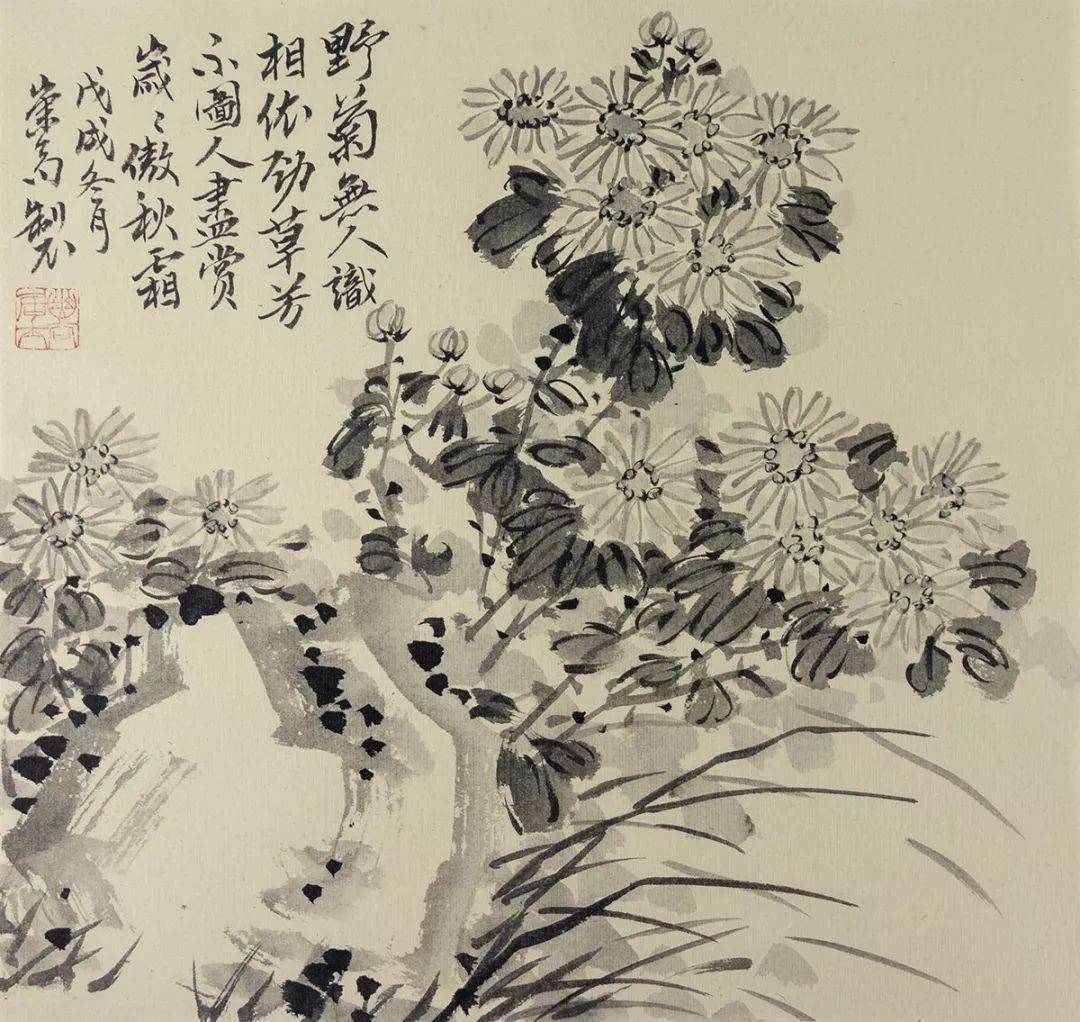 野菊無人識
相依勁草芳
不圖人盡賞
歲〻傲秋霜
戊戌冬月
崇高製